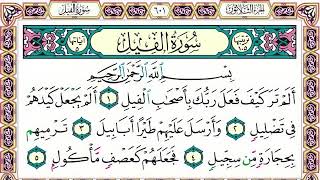 الجزء الثلاثون ٦٠١ سورة الفيل
سُورَةُ الفِيلِ
بِسْمِ اللَّهِ الرَّحْمَٰنِ الرَّحِيمِ
أَلَمْ تَرَ كَيْفَ فَعَلَ رَبُّكَ بِأَصْحَابِ الْفِيلِ ١ أَلَمْ يَجْعَلْ كَيْدَهُمْ
فِي تَضْلِيلٍ ٢ وَأَرْسَلَ عَلَيْهِمْ طَيْرًا أَبَابِيلَ ٣ تَرْمِيهِم
بِحِجَارَةٍ مِّن سِجِّيلٍ ٤ فَجَعَلَهُمْ كَعَصْفٍ مَّأْكُولٍ ٥